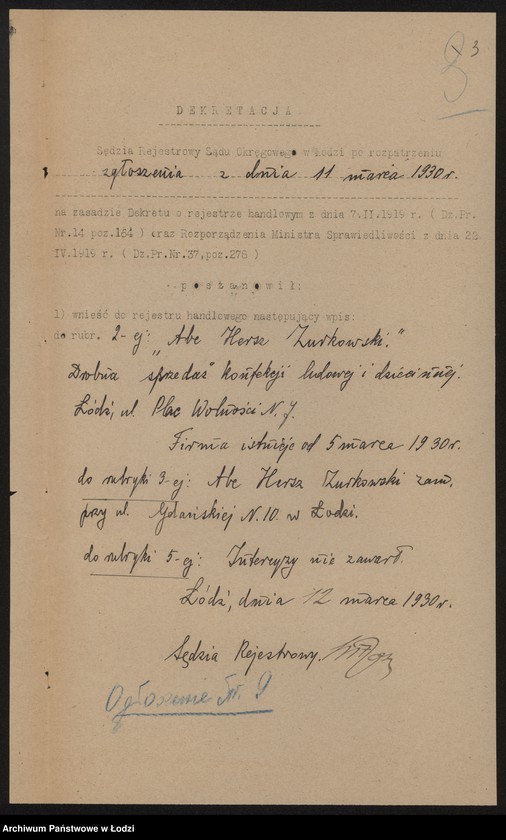 3
DEKRETACJA
Sędzia Rejestrowy Sądu Okręgowego w Łodzi po rozpatrzeniu
zgłoszenia z dnia 11 marca 1930 r.
na zasadzie Dekretu o rejestrze handlowym z dnia 7.II.1919 r. ( Dz.Pr.
Nr.14 poz.164 ) oraz Rozporządzenia Ministra Sprawiedliwości z dnia 22
IV.1919 r. ( Dz.Pr.Nr.37,poz.278 )
postanowił:
1) wnieść do rejestru handlowego następujący wpis:
do rubr. 2-ej: „Abe Hersz Żurkowski."
Drobna sprzedaż konfekcji ludowej i dziecinnej.
Łódź, ul Plac Wolności N. 7.
Firma istnieje od 5 marca 1930 r.
do rubryki 3-ej: Abe Hersz Żurkowski zam.
przy ul. Gdańskiej N. 10. w Łodzi.
do rubryki 5-ej: Intercyzy nie zawarł.
Łódź, dnia 12 marca 1930 r.
Sędzia Rejestrowy.
Ogłoszenie Nr. 9
Archiwum Państwowe w Łodzi